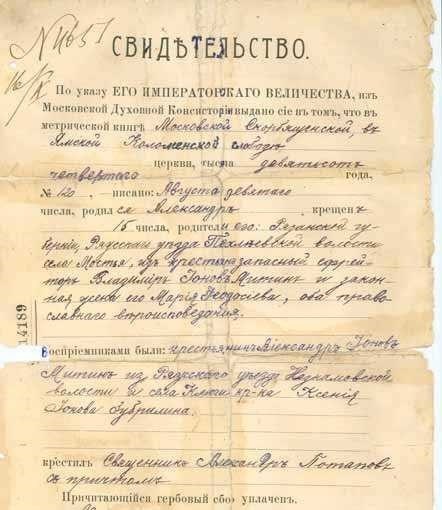 № 1657
16/X
СВИДѢТЕЛЬСТВО.
По указу ЕГО ИМПЕРАТОРСКАГО ВЕЛИЧЕСТВА, изъ
Московской Духовной Консисторіи выдано сіе въ томъ, что въ
метрической книгѣ Московской Скорбященской, въ
Ямской Коломенской слободѣ
церкви, тысяча девятьсотъ
четвертаго года,
№ 120, писано: Августа девятаго
числа, родился Александръ крещенъ
15 числа, родители его: Рязанской гу-
берніи, Ряжскаго уѣзда волости
села Мостья, изъ крестьянъ запасный ефрей-
торъ Владиміръ Іоновъ Митинъ и закон-
ная жена его Марія Ѳеодосіева, оба право-
славнаго вѣроисповѣданія.
14189
Воспріемниками были: крестьянинъ Александръ Іоновъ
Митинъ изъ Ряжскаго уѣзда
волости и села Ключи кр-ка Ксенія
Іонова
крестилъ Священникъ Александръ Потаповъ
съ причтомъ
Причитающійся гербовый сборъ уплаченъ.